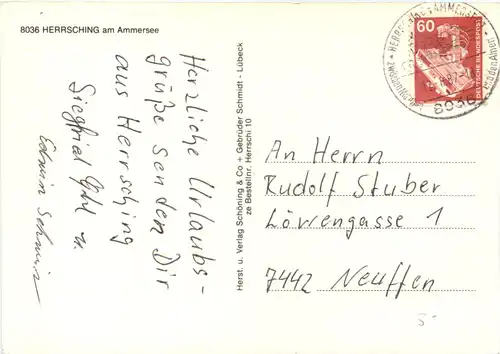 8036 HERRSCHING am Ammersee
Herzliche Urlaubs-
grüße senden Dir
aus Herrsching
Siegfried u.
Edwin
Herst. u. Verlag Schöning & Co + Gebrüder Schmidt - Lübeck
ze Bestellnr. Herrschi 10
60
DEUTSCHE BUNDESPOST
8036
An Herrn
Rudolf Stuber
Löwengasse 1
7442 Neuffen